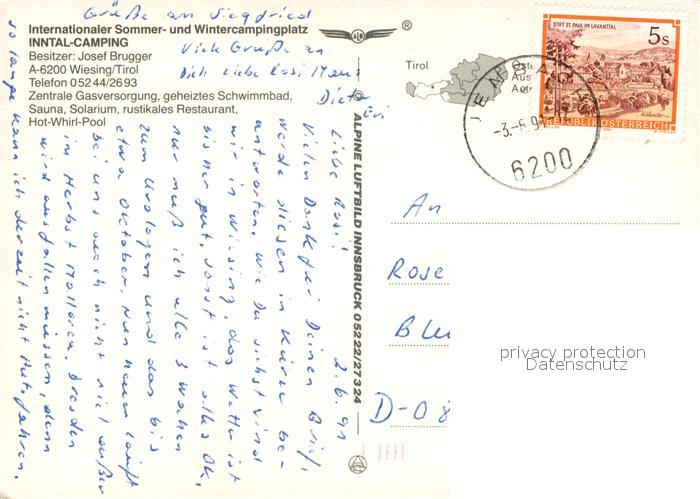 Grüße an Siegfried
Internationaler Sommer- und Wintercampingplatz
INNTAL-CAMPING
Besitzer: Josef Brugger
A-6200 Wiesing/Tirol
Telefon 05244/2693
Zentrale Gasversorgung, geheiztes Schwimmbad,
Sauna, Solarium, rustikales Restaurant,
Hot-Whirl-Pool
Viele Grüße an
Dich liebe Rosi
Dieter
Evi
®
Tirol
STIFT ST. PAUL IM LAVANTTAL
5s
REPUBLIK ÖSTERREICH
6200
ALPINE LUFTBILD INNSBRUCK 05222/27324
2.6.91
Liebe Rosi!
Vielen Dank für Deinen Brief,
werde diesen in Kürze be-
antworten. Wie Du siehst sind
wir in Wiesing, das Wetter ist
bisher gut, sonst ist alles OK,
nur muß ich alle 3 Wochen
zum Urologen und das bis
etwa Oktober. Nun haun läuft
bei uns auch nicht viel außer
im Herbst Mallorca. Dresden
wird ausfallen müssen, denn
so lange kann ich derzeit nicht Autofahren.
An
Rose
Blu
D-08
privacy protection
Datenschutz